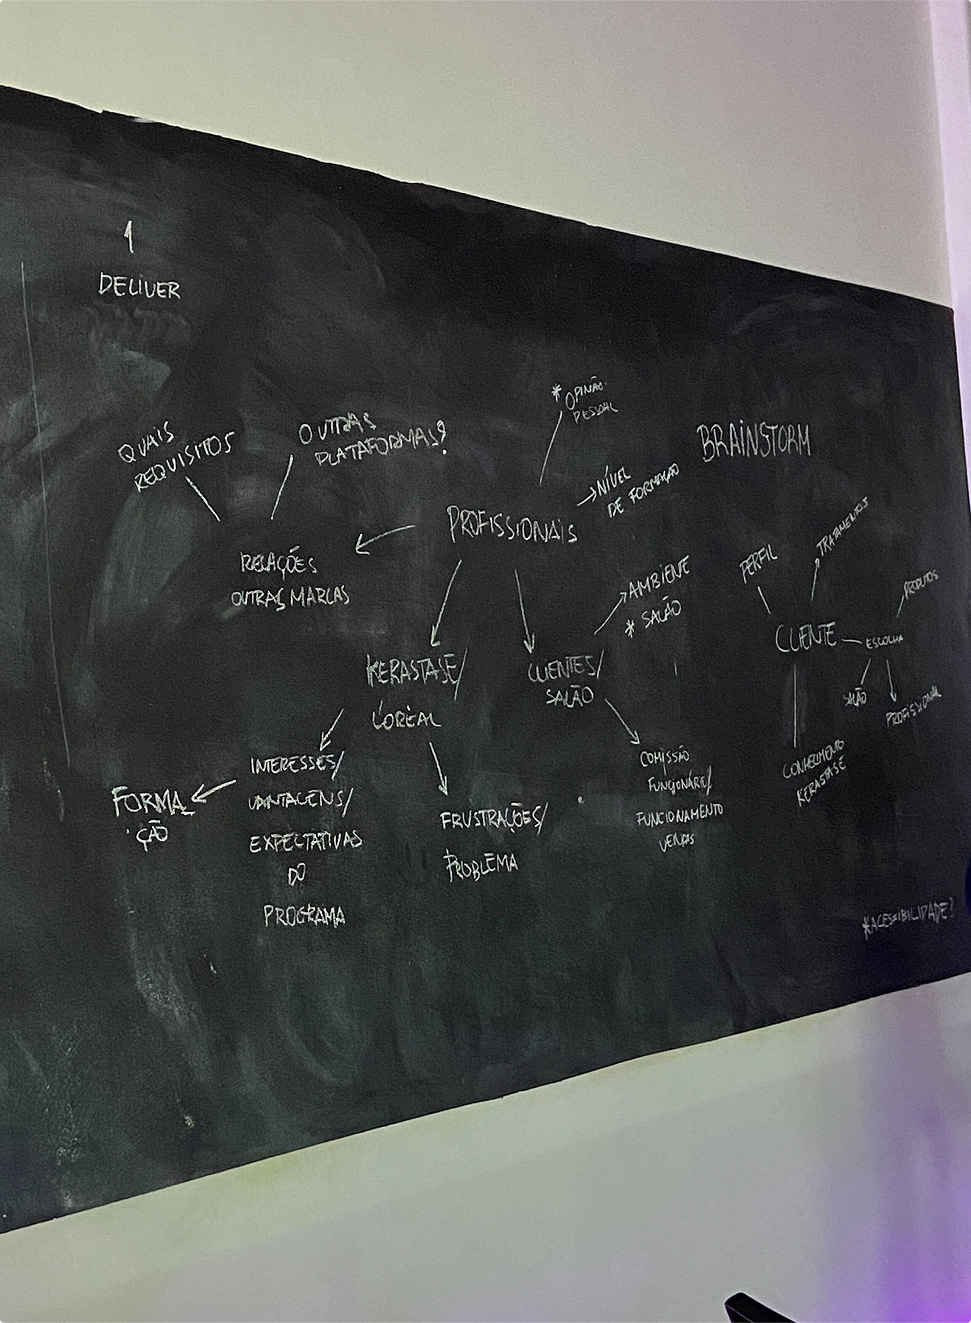 1
DELIVER
QUAIS
REQUISITOS
OUTRAS
PLATAFORMAS?
* OPINÃO
PESSOAL
BRAINSTORM
PROFISSIONAIS
NÍVEL
DE FORMAÇÃO
RELAÇÕES
OUTRAS MARCAS
AMBIENE
* SALÃO
KERASTASE/
LOREAL
CLIENTES/
SALÃO
INTERESSES/
VANTAGENS/
EXPECTATIVAS
DO
PROGRAMA
FORMA_
ÇÃO
FRUSTRAÇÕES/
PROBLEMA
COMISSÃO
FUNCIONÁRIO/
FUNCIONAMENTO
VENDAS
PERFIL
TRATAMENTOS
CLIENTE
ESCOLHA
PRODUTOS
SALÃO
PROFISSIONAL
CONHECIMENTO
KERASTASE
*ACESSIBILIDADE?